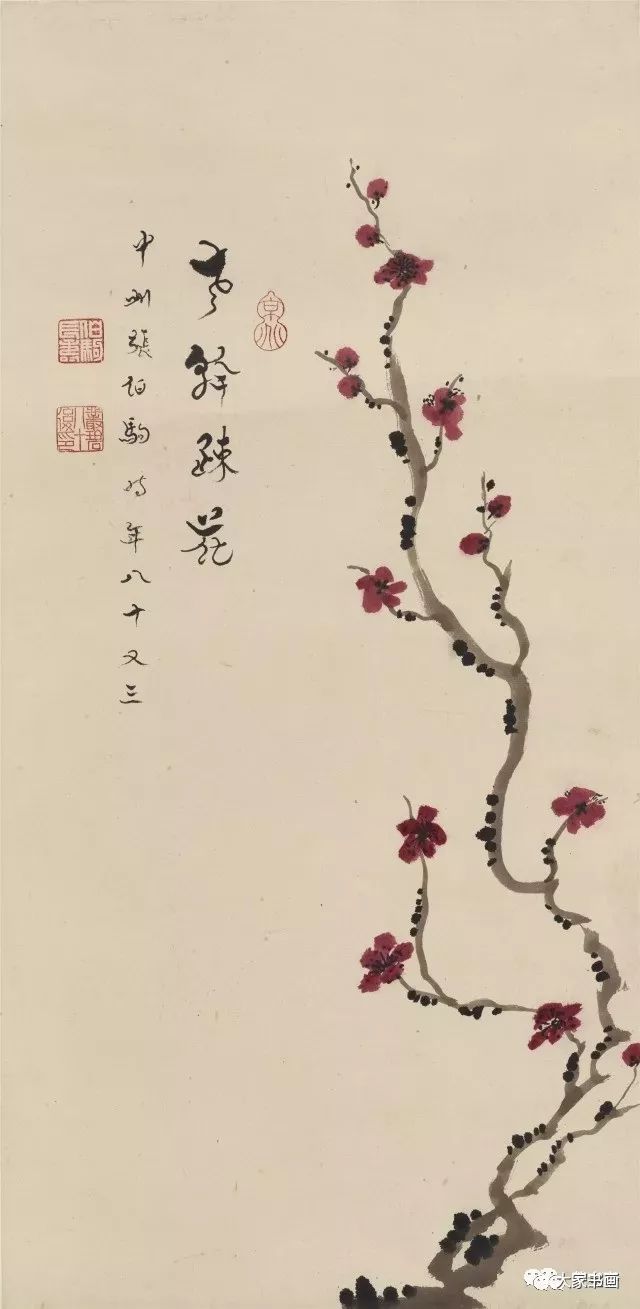 京兆
老幹疎花
中州張伯駒時年八十又三
伯駒長壽
大家书画